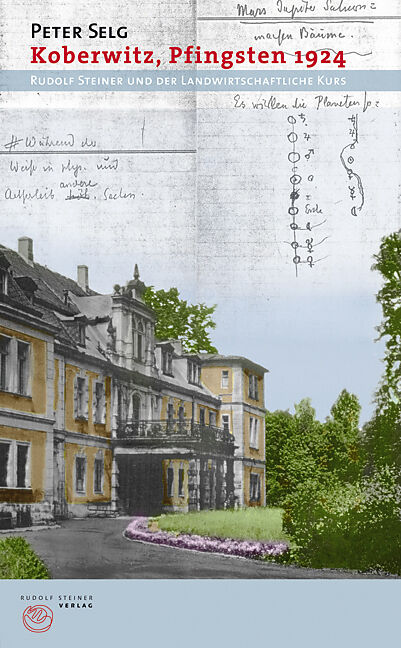 Mars Jupiter Saturn =
machen Bäume.
PETER SELG
Koberwitz, Pfingsten 1924
RUDOLF STEINER UND DER LANDWIRTSCHAFTLICHE KURS
Es wirken die Planeten so =
# Während der
in phys. und
andere
Aetherleib Sachen.
Erde
RUDOLF STEINER
VERLAG